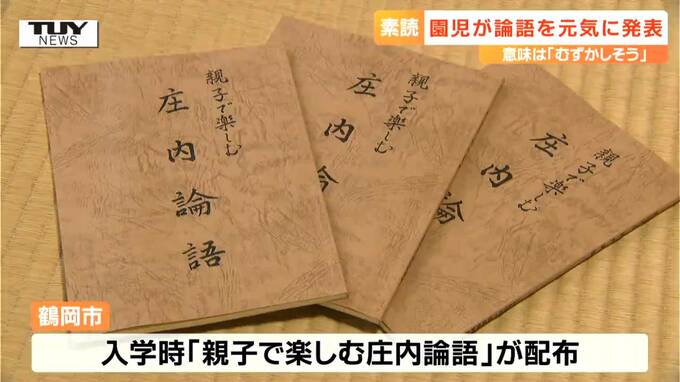 TUY
NEWS
素読
園児が論語を元気に発表
意味は「むずかしそう」
親子で楽しむ
庄内論語
親子で楽しむ
庄内論
親子で楽しむ
庄内論
鶴岡市
入学時「親子で楽しむ庄内論語」が配布